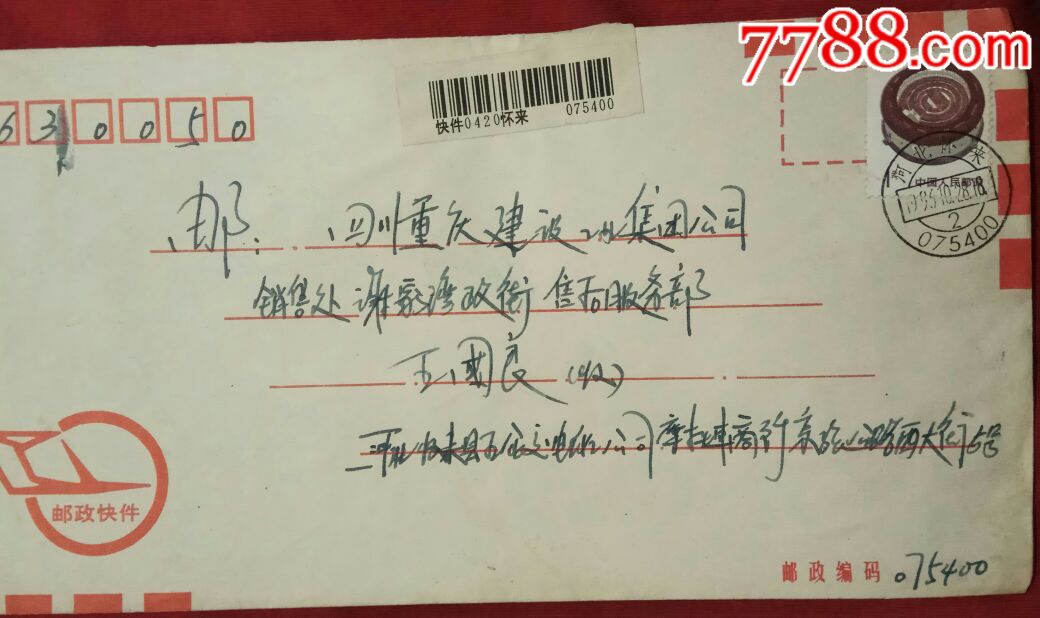 7788.com
630050
快件0420怀来 075400
中国人民邮政
河北 怀来
1995.10.28.18
2
075400
邮: 四川重庆建设工业集团公司
销售处 谢家湾政街 售后服务部
王国良(收)
河北怀来县五金交电化公司摩托车商行京张公路西大街6号
邮政快件
邮政编码 075400